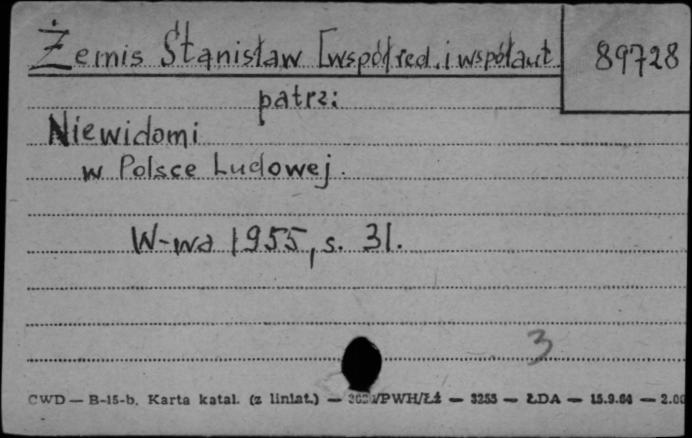 Żemis Stanisław [współred. i współaut.
89728
patrz:
Niewidomi
w Polsce Ludowej.
W-wa 1955, s. 31.
3
CWD — B-15-b. Karta katal. (z liniat.) — /PWH/Łź — 3255 — ŁDA — 15.9.64 — 2.00